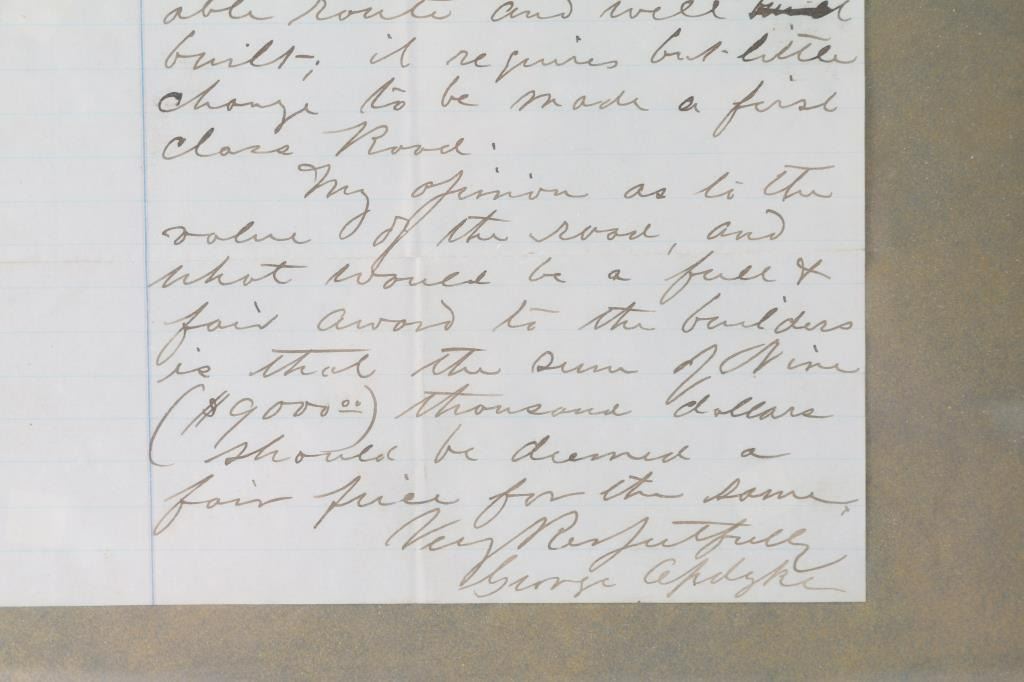 able route and well
built; it requires but little
change to be made a first
class Road.
My opinion as to the
value of the road, and
what would be a full &
fair award to the builders
is that the sum of Nine
($9000 00) thousand dollars
should be deemed a
fair price for the same.
Very Respectfully
George Opdyke